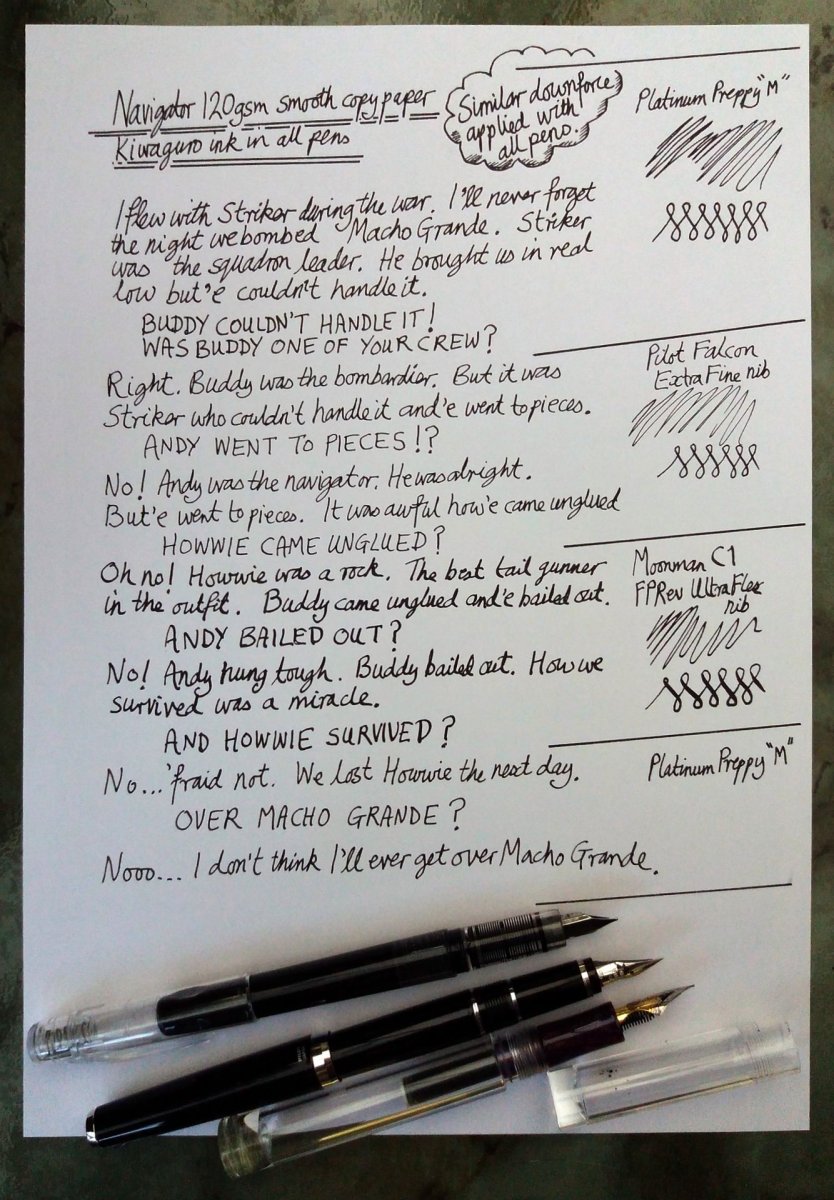 Navigator 120gsm smooth copy paper
Kiwaguro ink in all pens
Similar downforce
applied with
all pens.
Platinum Preppy "M"
I flew with Striker during the war. I'll never forget
the night we bombed Macho Grande. Striker
was the squadron leader. He brought us in real
low but'e couldn't handle it.
BUDDY COULDN'T HANDLE IT!
WAS BUDDY ONE OF YOUR CREW?
Pilot Falcon
Extra Fine nib
Right. Buddy was the bombardier. But it was
Striker who couldn't handle it and'e went to pieces.
ANDY WENT TO PIECES!?
No! Andy was the navigator. He was alright.
But'e went to pieces. It was awful how'e came unglued
HOWWIE CAME UNGLUED?
Moonman C1
FPRev UltraFlex
nib
Oh no! Howwie was a rock. The best tail gunner
in the outfit. Buddy came unglued and'e bailed out.
ANDY BAILED OUT?
No! Andy hung tough. Buddy bailed out. How we
survived was a miracle.
AND HOWWIE SURVIVED?
Platinum Preppy "M"
No...'fraid not. We lost Howwie the next day.
OVER MACHO GRANDE?
Nooo... I don't think I'll ever get over Macho Grande.